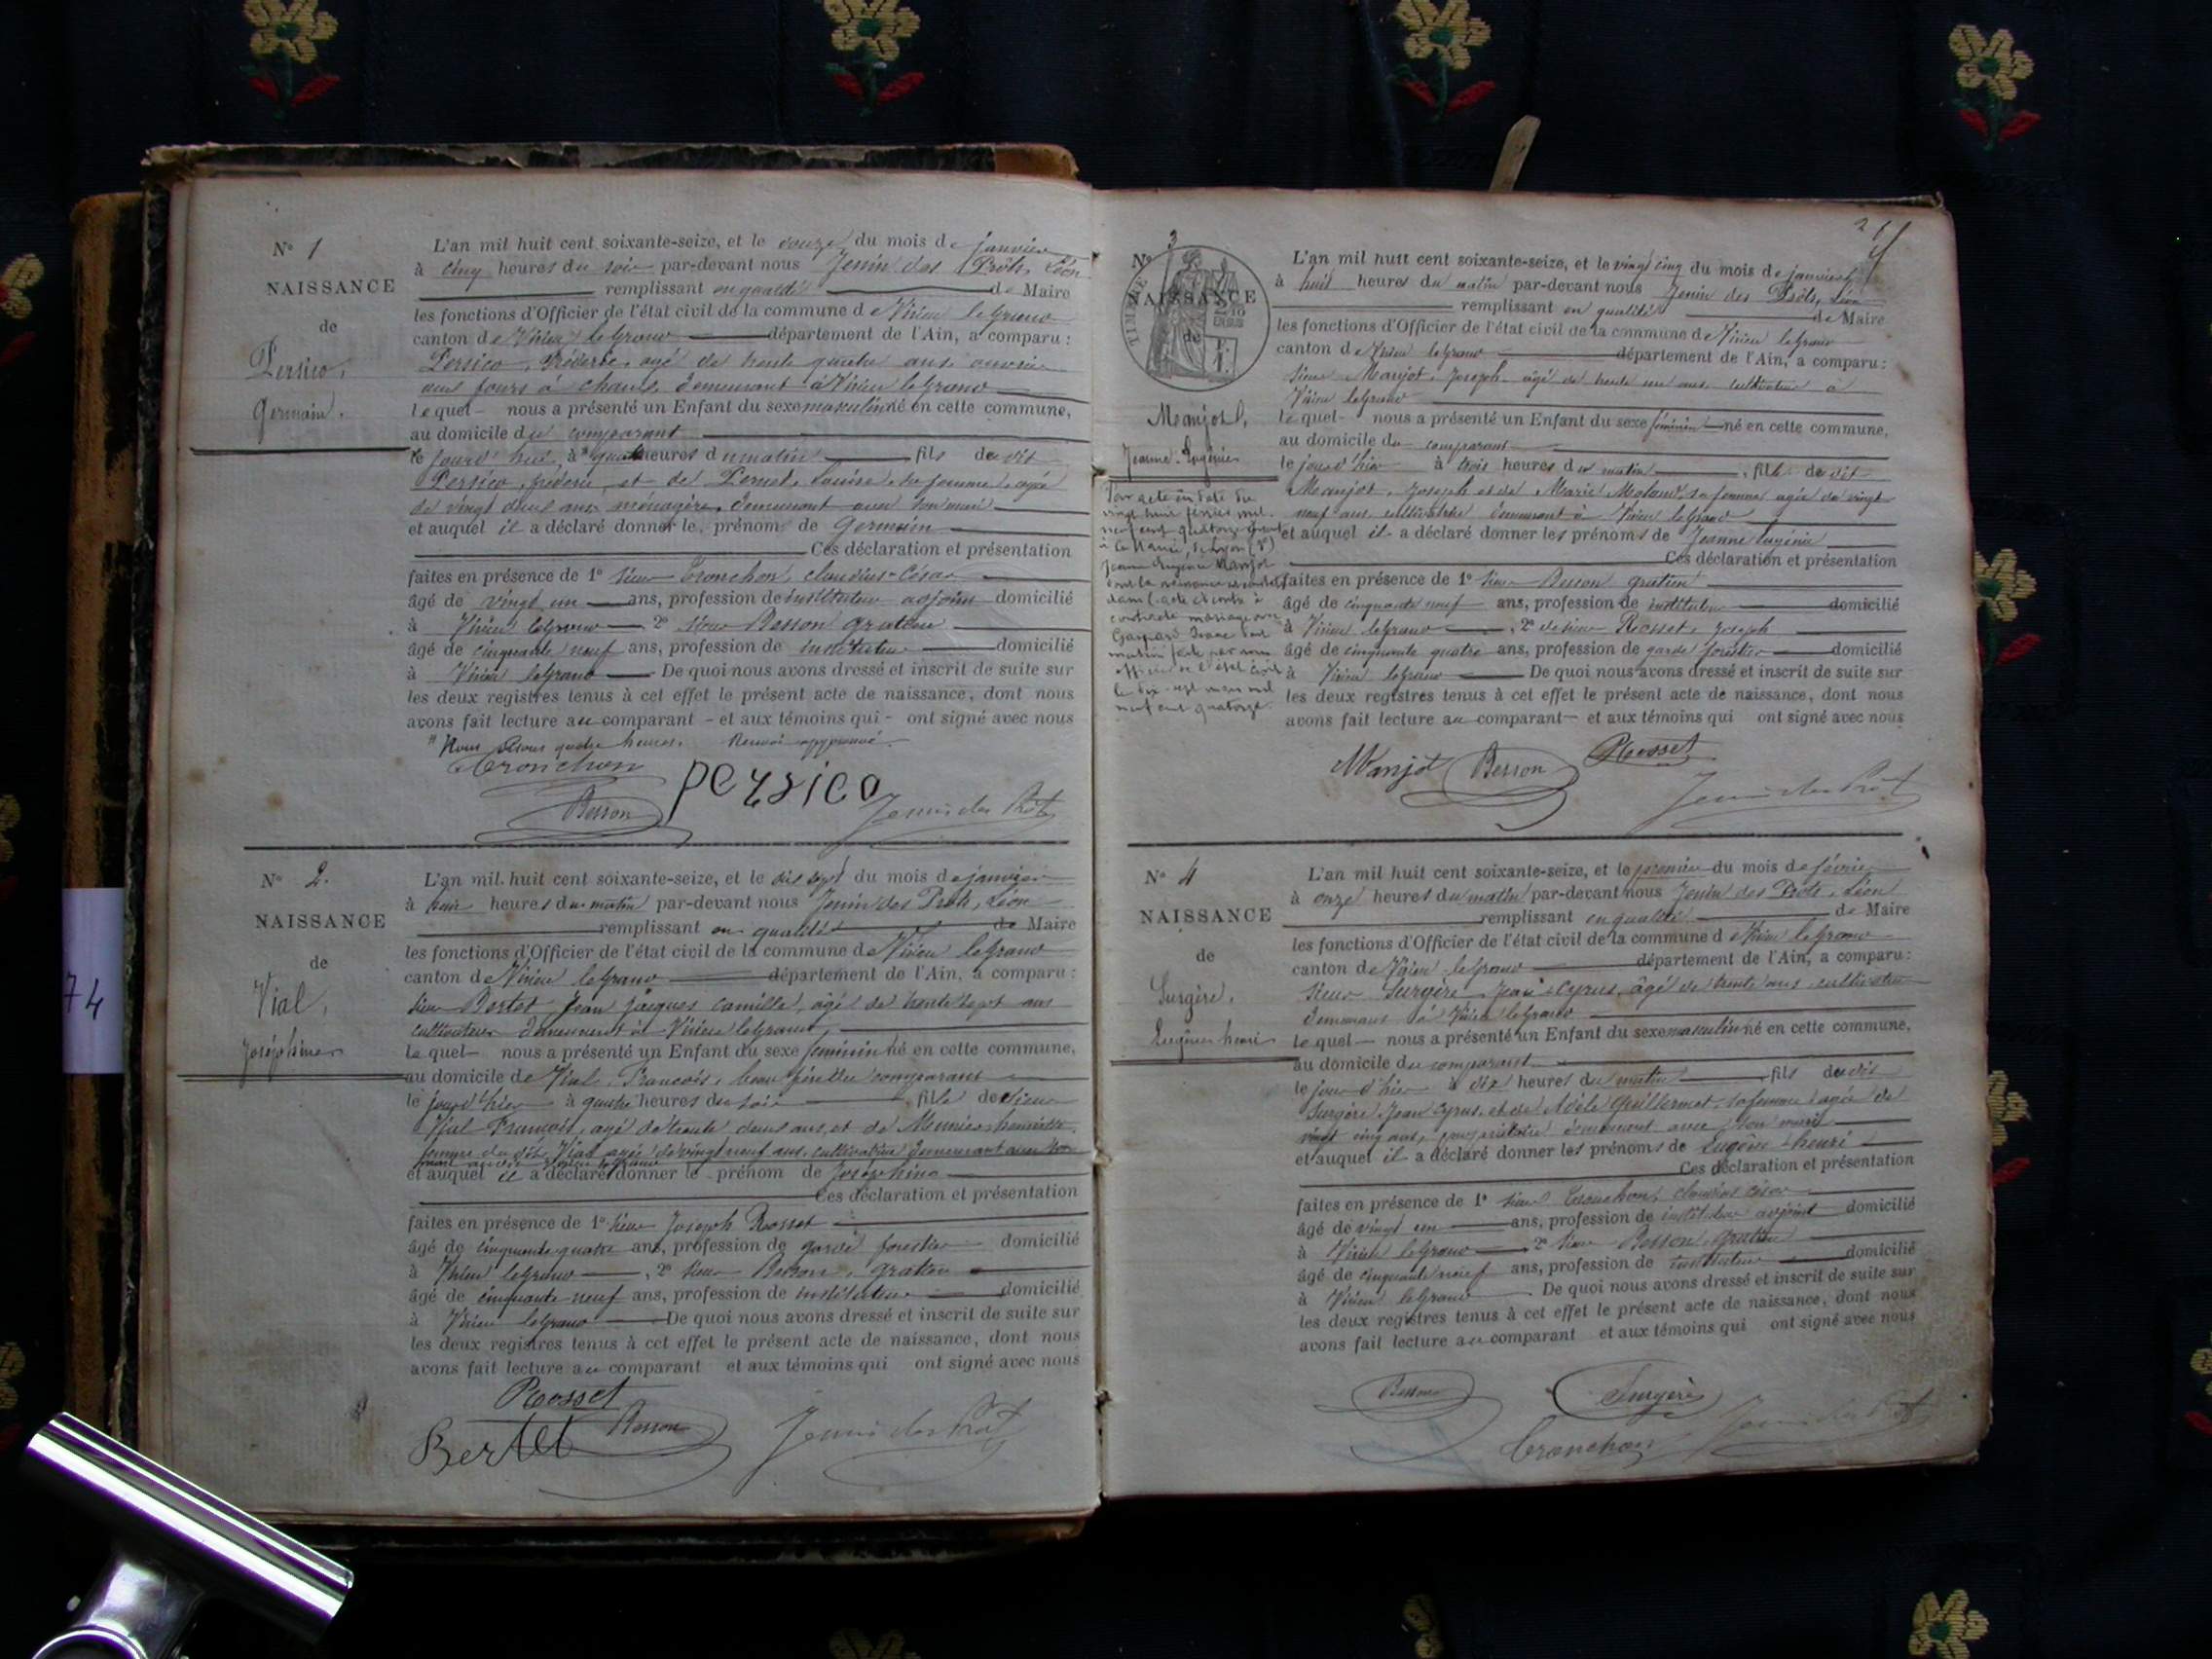 N° 1
NAISSANCE
de
Persico,
Germain.
L'an mil huit cent soixante-seize, et le douze du mois de janvier
à cinq heures du soir par-devant nous Jenin des Prôts, Léon
remplissant en qualité de Maire
les fonctions d'Officier de l'état civil de la commune de Virieu le grand
canton de Virieu le grand département de l'Ain, a comparu :
Persico, Fréderic, agé de trente quatre ans, ouvrier
aux fours à chaux, demeurant à Virieu le grand
Lequel nous a présenté un Enfant du sexe masculin né en cette commune,
au domicile du comparant
le jourd'hui, à quatre heures du matin fils du dit
Persico, fréderic et de Pernet, Louise, sa femme, agée
de vingt deux ans, ménagère, demeurant avec son mari
et auquel il a déclaré donner le prénom de Germain
Ces déclaration et présentation
faites en présence de 1° sieur Tronchon, claudius-César
âgé de vingt un ans, profession de instituteur adjoint domicilié
à Virieu le grand 2° sieur Besson gratien
âgé de cinquante neuf ans, profession de instituteur domicilié
à Virieu le grand De quoi nous avons dressé et inscrit de suite sur
les deux registres tenus à cet effet le présent acte de naissance, dont nous
avons fait lecture au comparant - et aux témoins qui - ont signé avec nous
quatre heures. Renvoi approuvé.
Tronchon
Persico
Besson
Jenin des Prôts
N° 2.
NAISSANCE
de
Vial,
Joséphine
L'an mil huit cent soixante-seize, et le dix sept du mois de janvier
à heures du matin par-devant nous Jenin des Prôts, Léon
remplissant en qualité de Maire
les fonctions d'Officier de l'état civil de la commune de Virieu le grand
canton de Virieu le grand département de l'Ain, a comparu :
sieur Bertet Jean Jacques Camille, agé de trente sept ans
cultivateur demeurant à Virieu le grand,
Lequel nous a présenté un Enfant du sexe féminin né en cette commune,
au domicile de Vial, François, beau frère du comparant
le jour d'hier à quatre heures du soir fille de sieur
Vial François, agé de trente deux ans, et de Meunier henriette
femme du dit Vial agée de vingt neuf ans, cultivatrice demeurant avec son
mari audit Virieu le grand
et auquel il a déclaré donner le prénom de Joséphine
Ces déclaration et présentation
faites en présence de 1° sieur Joseph Rosset
âgé de cinquante quatre ans, profession de garde forestier domicilié
à Virieu le grand, 2° sieur Besson, gratien
âgé de cinquante neuf ans, profession de instituteur domicilié
à Virieu le grand De quoi nous avons dressé et inscrit de suite sur
les deux registres tenus à cet effet le présent acte de naissance, dont nous
avons fait lecture au comparant et aux témoins qui ont signé avec nous
Rosset
Bertet
Besson
Jenin des Prôts
74
N° 3
TIMBRE
NAISSANCE
de
Manjot,
Jeanne-Eugénie
Par acte en date du
vingt huit février mil
neuf cent quatorze
à la Mairie de Lyon
Jeanne Eugénie Manjot
dont la naissance est constatée
dans l'acte ci contre a
contracté mariage avec
Gaspard
mention faite par nous
officier de l'état civil
le dix sept mars mil
neuf cent quatorze.
L'an mil huit cent soixante-seize, et le vingt cinq du mois de janvier
à huit heures du matin par-devant nous Jenin des Prôts, Léon
remplissant en qualité de Maire
les fonctions d'Officier de l'état civil de la commune de Virieu le grand
canton de Virieu le grand département de l'Ain, a comparu :
sieur Manjot, Joseph âgé de trente un ans, cultivateur à
Virieu le grand
Lequel nous a présenté un Enfant du sexe féminin né en cette commune,
au domicile du comparant
le jour d'hier à trois heures du matin, fille du dit
Manjot, Joseph et de Marie Moland, sa femme agée de vingt
neuf ans, cultivatrice demeurant à Virieu le grand
et auquel il a déclaré donner les prénoms de Jeanne Eugénie
Ces déclaration et présentation
faites en présence de 1° sieur Besson gratien
âgé de cinquante neuf ans, profession de instituteur domicilié
à Virieu le grand, 2° de sieur Rosset, Joseph
âgé de cinquante quatre ans, profession de garde forestier domicilié
à Virieu le grand De quoi nous avons dressé et inscrit de suite sur
les deux registres tenus à cet effet le présent acte de naissance, dont nous
avons fait lecture au comparant et aux témoins qui ont signé avec nous
Manjot
Besson
Rosset
Jenin des Prôts
N° 4
NAISSANCE
de
Surgère,
Eugène henri
L'an mil huit cent soixante-seize, et le premier du mois de février
à onze heures du matin par-devant nous Jenin des Prôts, Léon
remplissant en qualité de Maire
les fonctions d'Officier de l'état civil de la commune de Virieu le grand
canton de Virieu le grand département de l'Ain, a comparu :
sieur Surgère, Jean-Cyrus, âgé de trente ans, cultivateur
demeurant à Virieu le grand
Lequel nous a présenté un Enfant du sexe masculin né en cette commune,
au domicile du comparant
le jour d'hier à dix heures du matin, fils du dit
Surgère, Jean Cyrus, et de Adèle Guillermet, sa femme agée de
vingt cinq ans, demeurant avec son mari
et auquel il a déclaré donner les prénoms de Eugène henri
Ces déclaration et présentation
faites en présence de 1° sieur Tronchon, claudius césar
âgé de vingt un ans, profession de instituteur adjoint domicilié
à Virieu le grand, 2° sieur Besson, gratien
âgé de cinquante neuf ans, profession de instituteur domicilié
à Virieu le grand De quoi nous avons dressé et inscrit de suite sur
les deux registres tenus à cet effet le présent acte de naissance, dont nous
avons fait lecture au comparant et aux témoins qui ont signé avec nous
Besson
Surgère
Tronchon
Jenin des Prôts